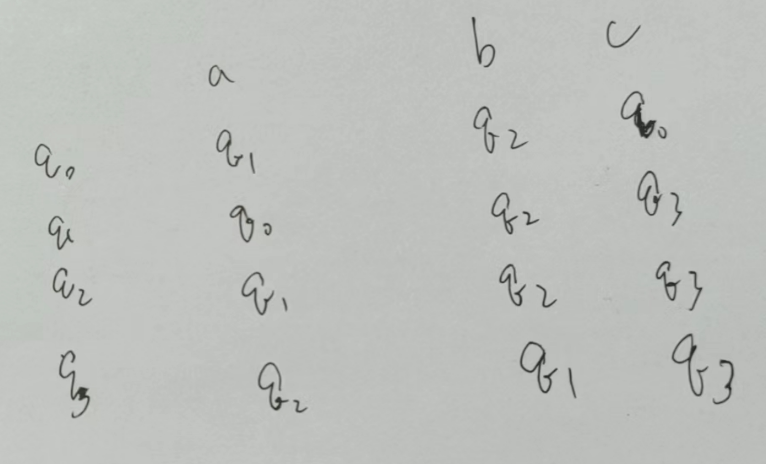 a b c
q₀ q₁ q₂ q₀
q₁ q₀ q₂ q₃
q₂ q₁ q₂ q₃
q₃ q₂ q₁ q₃